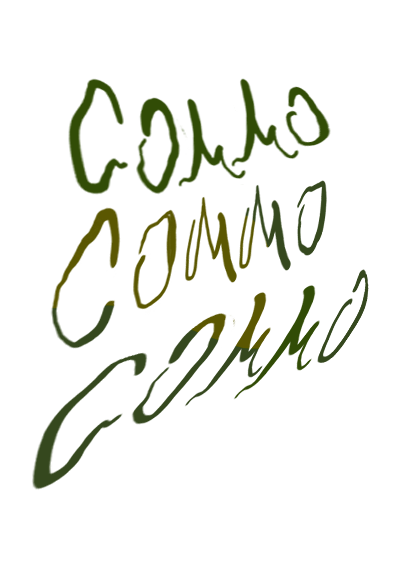 COMMO
COMMO
COMMO